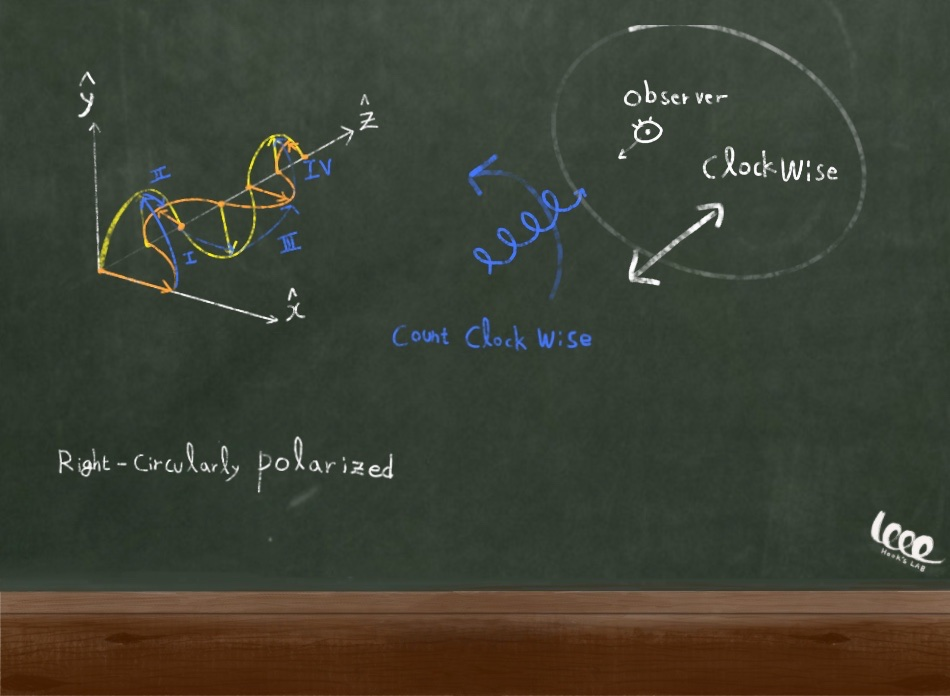 ŷ
ẑ
II
IV
I
III
x̂
Observer
ClockWise
Count ClockWise
Right-Circularly polarized
Hook's LAB